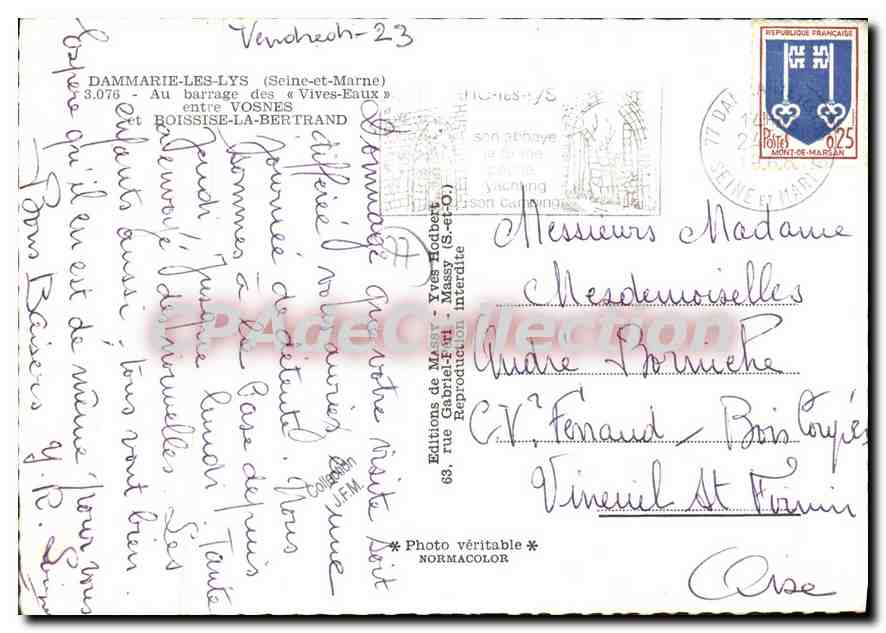 Vendredi - 23
DAMMARIE-LES-LYS (Seine-et-Marne)
3.076 - Au barrage des « Vives-Eaux »
entre VOSNES
et BOISSISE-LA-BERTRAND
Dommage que votre visite soit
différée, vous auriez eu une
journée de détente. Nous
sommes à la base depuis
jeudi, jusque lundi. Tante
a envoyé des nouvelles. Les
enfants aussi, tous vont bien.
J'espère qu'il en est de même pour vous
Bons Baisers Y. R.
Editions de Massy - Yves Hodbert
63, rue Gabriel-Péri - Massy (S.-et-O.)
Reproduction interdite
* Photo véritable *
NORMACOLOR
Collection
J.F.M.
son abbaye
pêche
yachting
son camping
77 DAM
SEINE ET MARNE
REPUBLIQUE FRANÇAISE
POSTES 0,25
MONT-DE-MARSAN
Messieurs Madame
Mesdemoiselles
André Borniche
C.V. Ferraud - Bois
Vineuil St Firmin
Oise
CPADeCollection